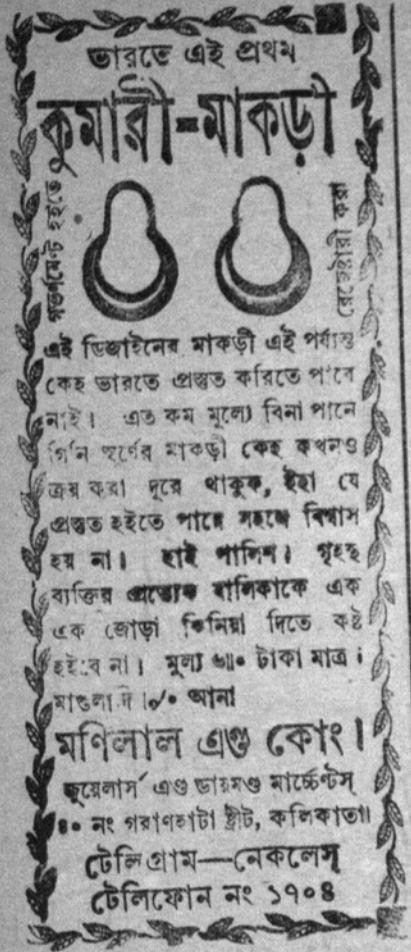 ভারতে এই প্রথম
কুমারী=মাকড়ী
গভর্ণমেণ্ট হইতে
রেজেষ্টারী করা
এই ডিজাইনের মাকড়ী এই পর্য্যন্ত
কেহ ভারতে প্রস্তুত করিতে পারে
নাই। এত কম মূল্যে বিনা পানে
গিনি স্বর্ণের মাকড়ী কেহ কখনও
ক্রয় করা দূরে থাকুক, ইহা যে
প্রস্তুত হইতে পারে সহজে বিশ্বাস
হয় না। হাই পালিশ। গৃহস্থ
ব্যক্তির প্রত্যেক বালিকাকে এক
এক জোড়া কিনিয়া দিতে কষ্ট
হইবে না। মূল্য ৬॥০ টাকা মাত্র।
মাশুলাদি ।৵০ আনা
মণিলাল এণ্ড কোং।
জুয়েলার্স এণ্ড ডায়মণ্ড মার্চ্চেণ্টস্
৪০ নং গরাণহাটা ষ্ট্রীট, কলিকাতা॥
টেলিগ্রাম—নেকলেস্
টেলিফোন নং ১৭০৪